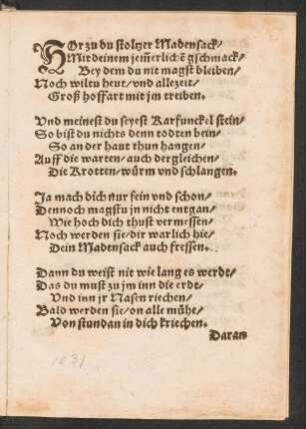 HOr zu du stoltzer Madensack/
Mit deinem jem̃erlichẽ gschmack/
Bey dem du nit magst bleiben/
Noch wiltu heut/ vnd allezeit/
Groß hoffart mit jm treiben.
Vnd meinest du seyest Karfunckel stein/
So bist du nichts denn todten bein/
So an der haut thun hangen/
Auff die warten/ auch der gleichen/
Die Krotten/ würm vnd schlangen.
Ja mach dich nur fein vnd schon/
Dennoch magstu jn nicht entgan/
Wie hoch dich thust vermessen/
Noch werden sie/ dir warlich hie/
Dein Madensack auch fressen.
Dann du weist nit wie lang es werdt/
Das du must zu jm inn die erdt/
Vnd inn jr Nasen riechen/
Bald werden sie/ on alle mühe/
Von stundan in dich kriechen.
Daran
1031